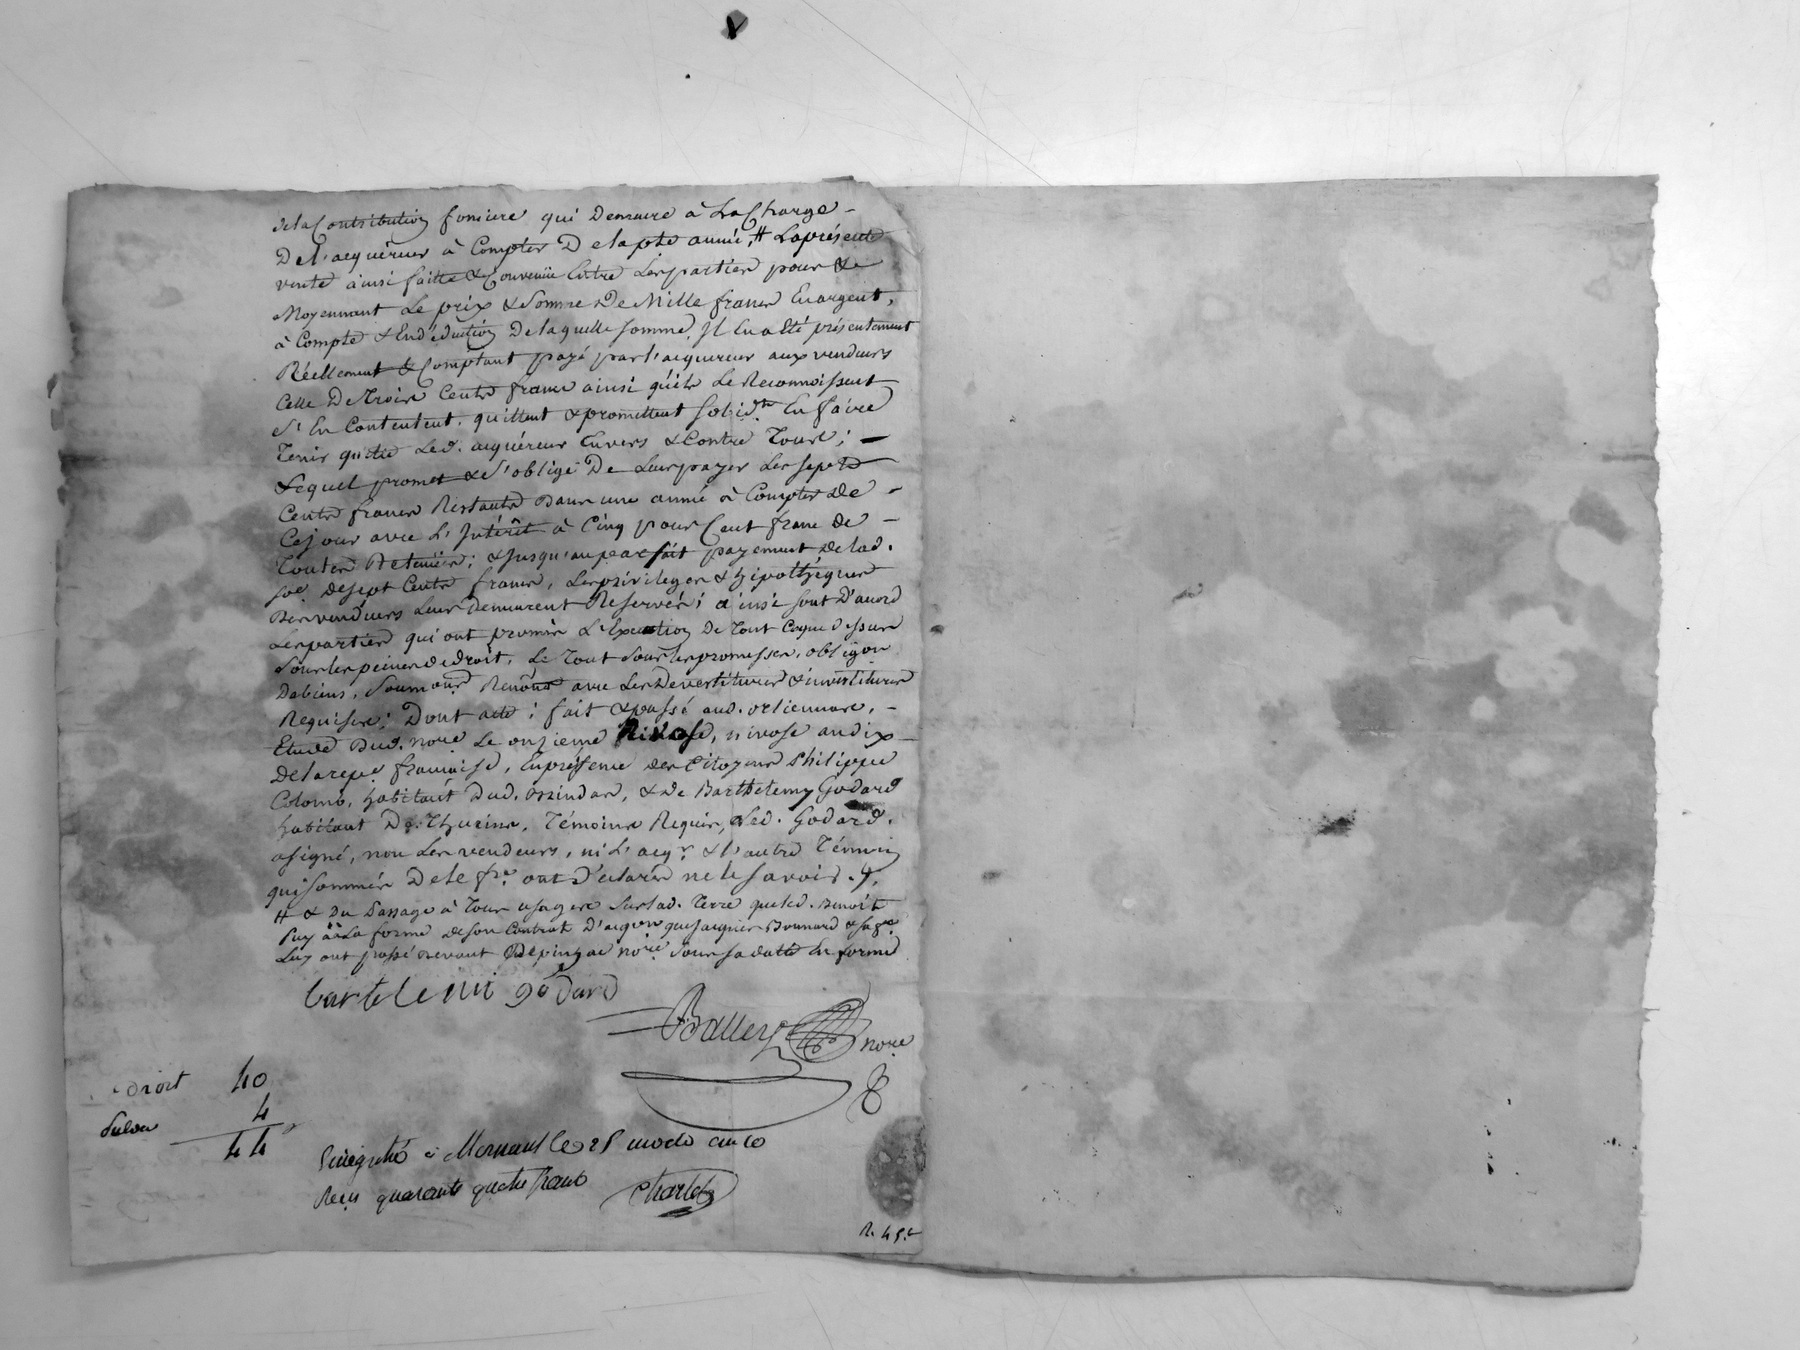 dela Contribution fonciere qui demeure à La Charge -
De l'acquéreur à Compter De la pnte année, # La présente
vente ainsi faitte & Convenüe Entre Les parties pour & -
Moyennant Le prix & Somme De Mille francs En argent,
à Compte & En déduction De laquelle somme, Il En a Eté présentement
Réellement & Comptant payé par l'acquereur aux vendeurs
Celle De Trois Cents francs ainsi qu'ils Le Reconnoissent
s'En Contentent, quittent & promettent solid.t En faire
Tenir quitte Led. acquéreur Envers & Contre Tous; -
Lequel promet & s'oblige De Leur payer Les sept
Cents francs Restants Dans une année à Compter De -
Ce jour avec L'Intérêt à Cinq pour Cent franc de -
Toutes Retenües; & Jusqu'au parfait payement de lad.
soe de sept Cents francs, Les privileges & hipothéques
Des vendeurs Leur Demeurent Reservés; ainsi sont D'acord
Les parties qui ont promis L'Exécution De Tout Ce que dessus
Sous Les peines de droit, Le Tout Sous Les promesses, obligon
De biens, Soumons Renons avec Les Devestitures & investitures
Requises; Dont acte; fait & passé aud. orlienas, -
Etude Dud. nore Le onzieme Nivose, nivose an dix -
De la repue française, En présence des Citoyens Philippe
Colomb, habitant Dud. , & de Barthelemy Godard
habitant De Thurins, Témoins Requis, Led. Godard.
a signé, non Les vendeurs, ni L'acqr & l'autre Témoin
qui sommés De le fre ont Déclarés ne le savoir. /.
# & Du Passage à Tous usages Sur lad. Terre que led. Benoit
Puy à La forme de son Contrat D'acqon que Bonnard & sa fe
Luy ont passé devant nore Sous sa datte En forme
bartelemi godard
Ballery nore
Droit 40
4
44
Enregistré à Mornant le 25 nivose an 10
Reçu quarante quatre francs Charlet
R. 45.c